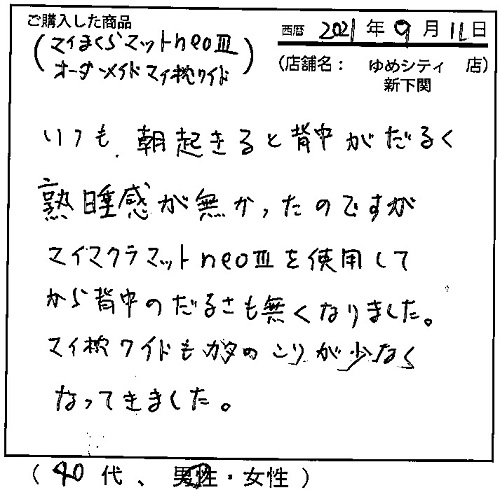 ご購入した商品
(マイまくらマットneoⅢ
オーダーメイドマイ枕ワイド)
西暦 2021年9月11日
(店舗名： ゆめシティ 店)
新下関
いつも、朝起きると背中がだるく
熟睡感が無かったのですが
マイマクラマットneoⅢを使用して
から背中のだるさも無くなりました。
マイ枕ワイドもカタのこりが少なく
なってきました。
(40代、男性・女性)